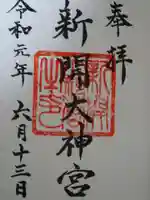 奉拝
新開大神宮
令和元年
六月十三日